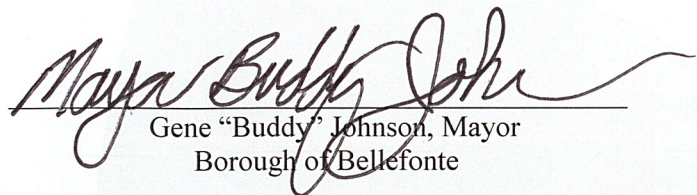 Mayor Buddy John
Gene “Buddy” Johnson, Mayor
Borough of Bellefonte